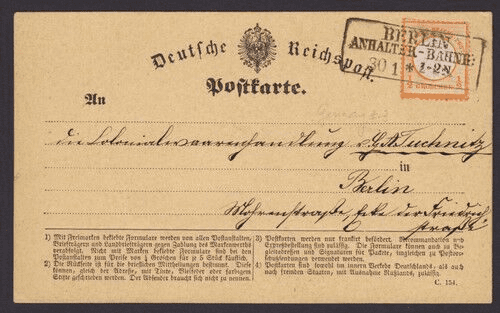 Deutsche Reichspost.
BERLIN
ANHALTER-BAHNHF:
30 1 * 1-2 N
Postkarte.
An
die Colonialwaarenhandlung v. G. A. Tuchnitz
in
Berlin
Mohrenstraße, Ecke der Friedrich
straße
1) Mit Freimarken beklebte Formulare werden von allen Postanstalten,
Briefträgern und Landbriefträgern gegen Zahlung des Markenwerths
verabfolgt. Nicht mit Marken beklebte Formulare sind bei den
Postanstalten zum Preise von ½ Groschen für je 5 Stück käuflich.
2) Die Rückseite ist für die brieflichen Mittheilungen bestimmt. Diese
können, gleich der Adresse, mit Tinte, Bleifeder oder farbigem
Stifte geschrieben werden. Der Absender braucht sich nicht zu nennen.
3) Postkarten werden nur frankirt befördert. Recommandation und
Expreßbestellung sind zulässig. Die Formulare können auch zu Be-
gleitadressen und Signaturen für Packete, ingleichen zu Postvor-
schußsendungen verwendet werden.
4) Postkarten sind sowohl im innern Verkehr Deutschlands, als auch
nach fremden Staaten, mit Ausnahme Rußlands, zulässig.
C. 154.